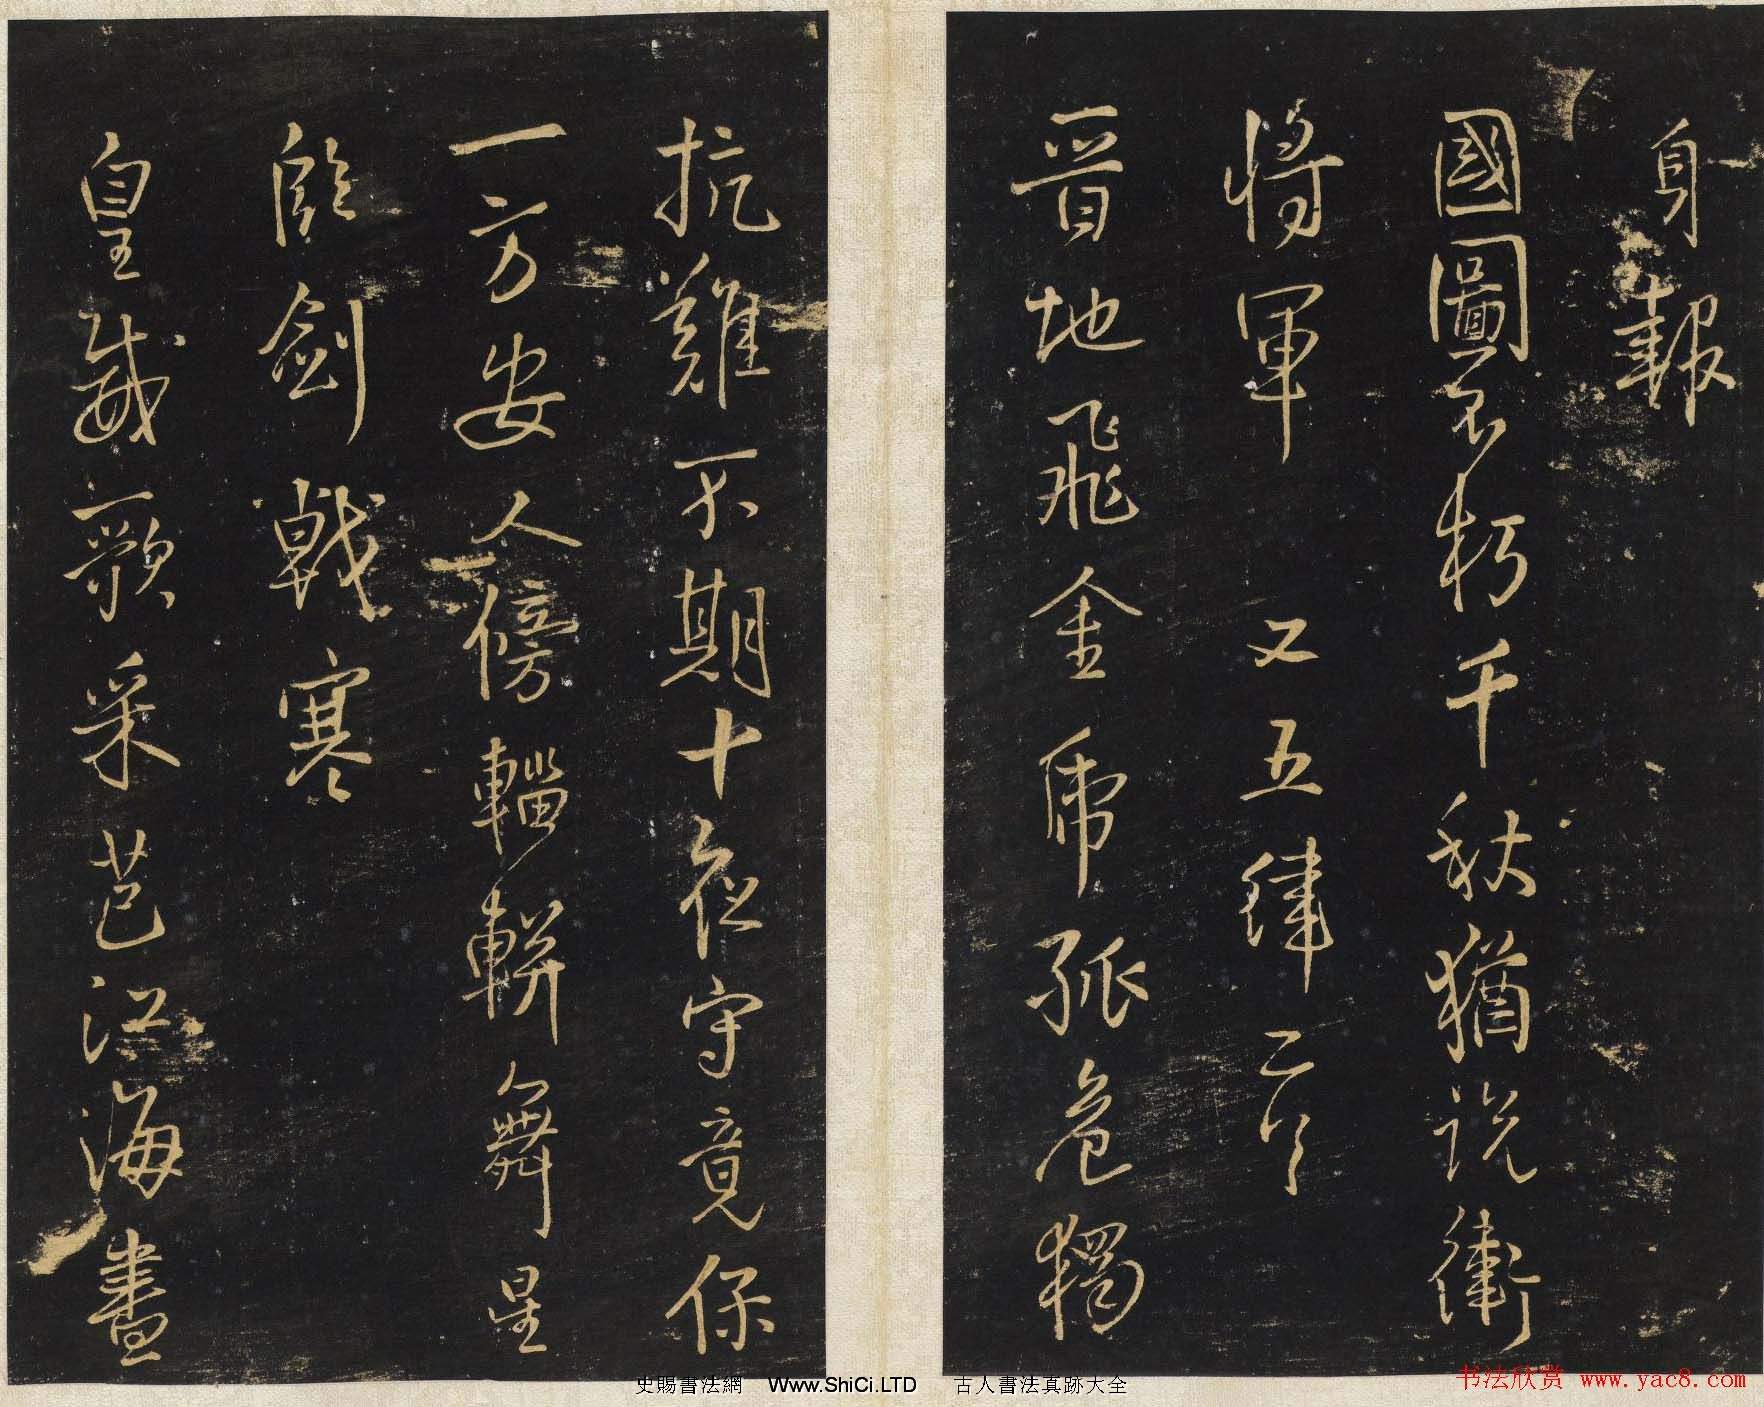 身報
國圖不朽千秋猶說衛
將軍 又五律二首
晉地飛金虎孤危獨
抗難不期十夜守竟保
一方安人傍輜軿舞星
臨劍戟寒
皇威歌采芑江海晝
史賜書法網 Www.ShiCi.LTD 古人書法真跡大全
书法欣赏 www.yac8.com